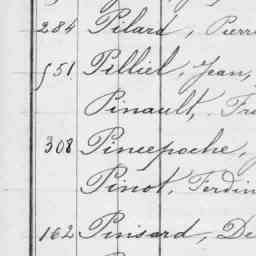 284 Pilard, Pierre
551 Pilliel, Jean,
Pinault, Fr
308 Pincepoche,
Pinot, Ferdin
162 Pinsard, De